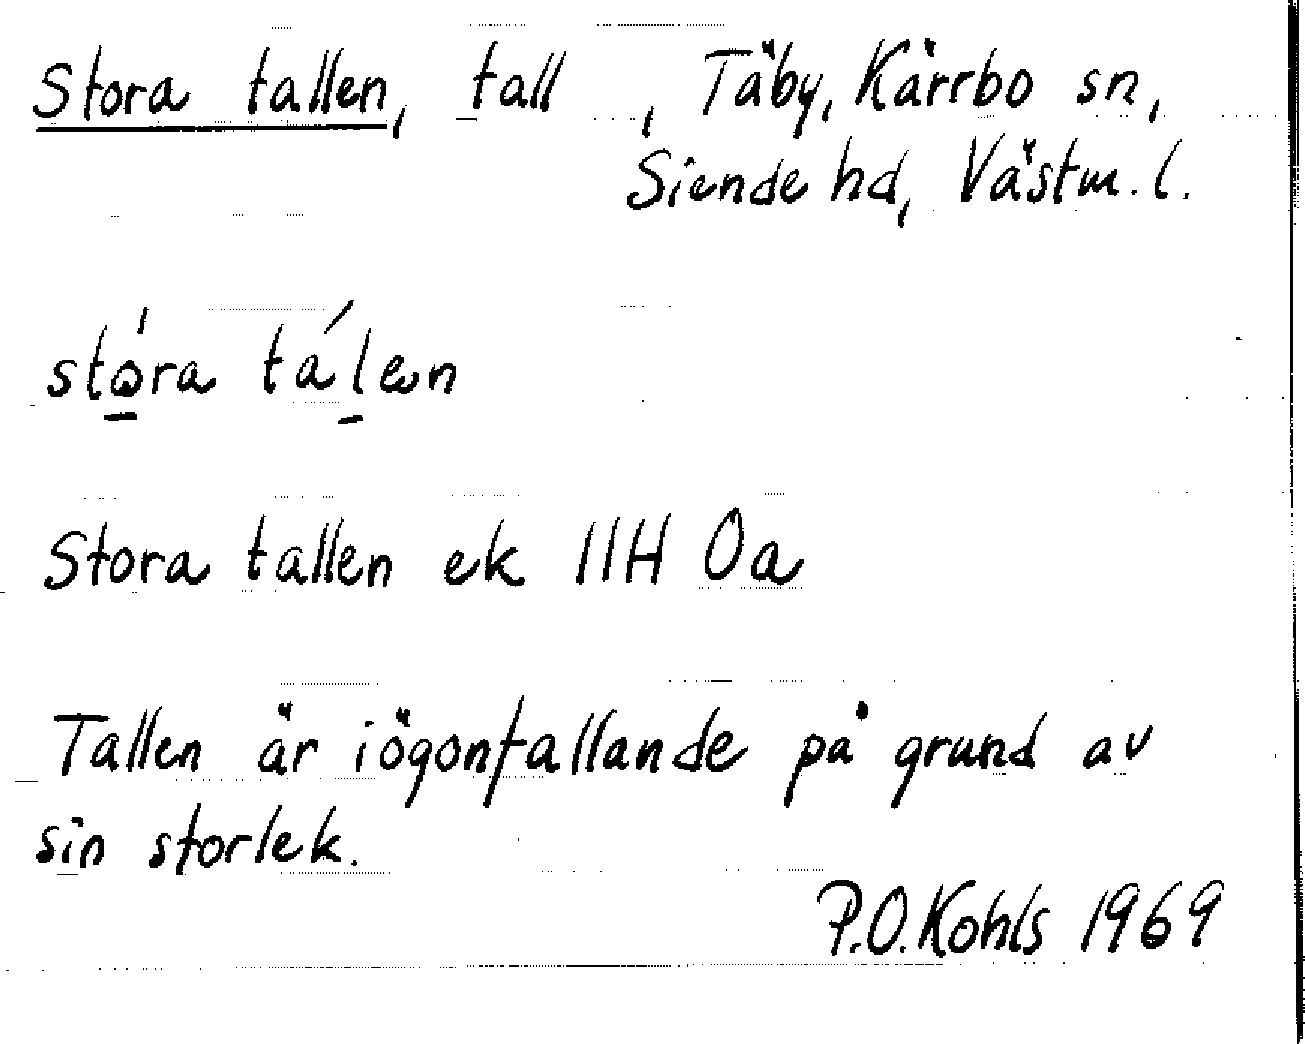 Stora tallen, tall , Täby, Kärrbo sn,
Siende hd, Västm. l.
stó̱ra tá̱len
Stora tallen ek 11H 0a
Tallen är iögonfallande på grund av
sin storlek.
P.O.Kohls 1969